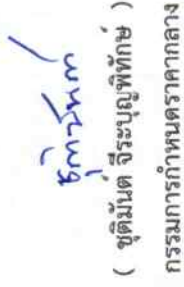 ( ชุติมันต์ จีระบุญพิทักษ์ )
กรรมการกำหนดราคากลาง